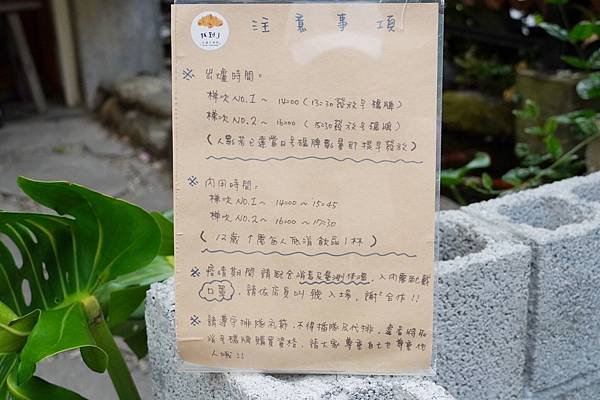 找到J
注意事項
※ 出爐時間。
梯次 NO.1 ~ 14:00 (13:30發放号碼牌)
梯次 NO.2 ~ 16:00 (15:30發放号碼牌)
(人數若已達當日号碼牌數量即提早發放)
※ 內用時間:
梯次 NO.1 ~ 14:00 ~ 15:45
梯次 NO.2 ~ 16:00 ~ 17:30
(12歲↑需每人低消飲品1杯)
※ 疫情期間請配合消毒及量測体溫,入內需配戴
口罩,請依店員叫號入場,謝謝合作!!
※ 請遵守排隊礼節,不得插隊及代排,違者將取
消号碼牌購買資格,請大家尊重自己也尊重他
人哦!!